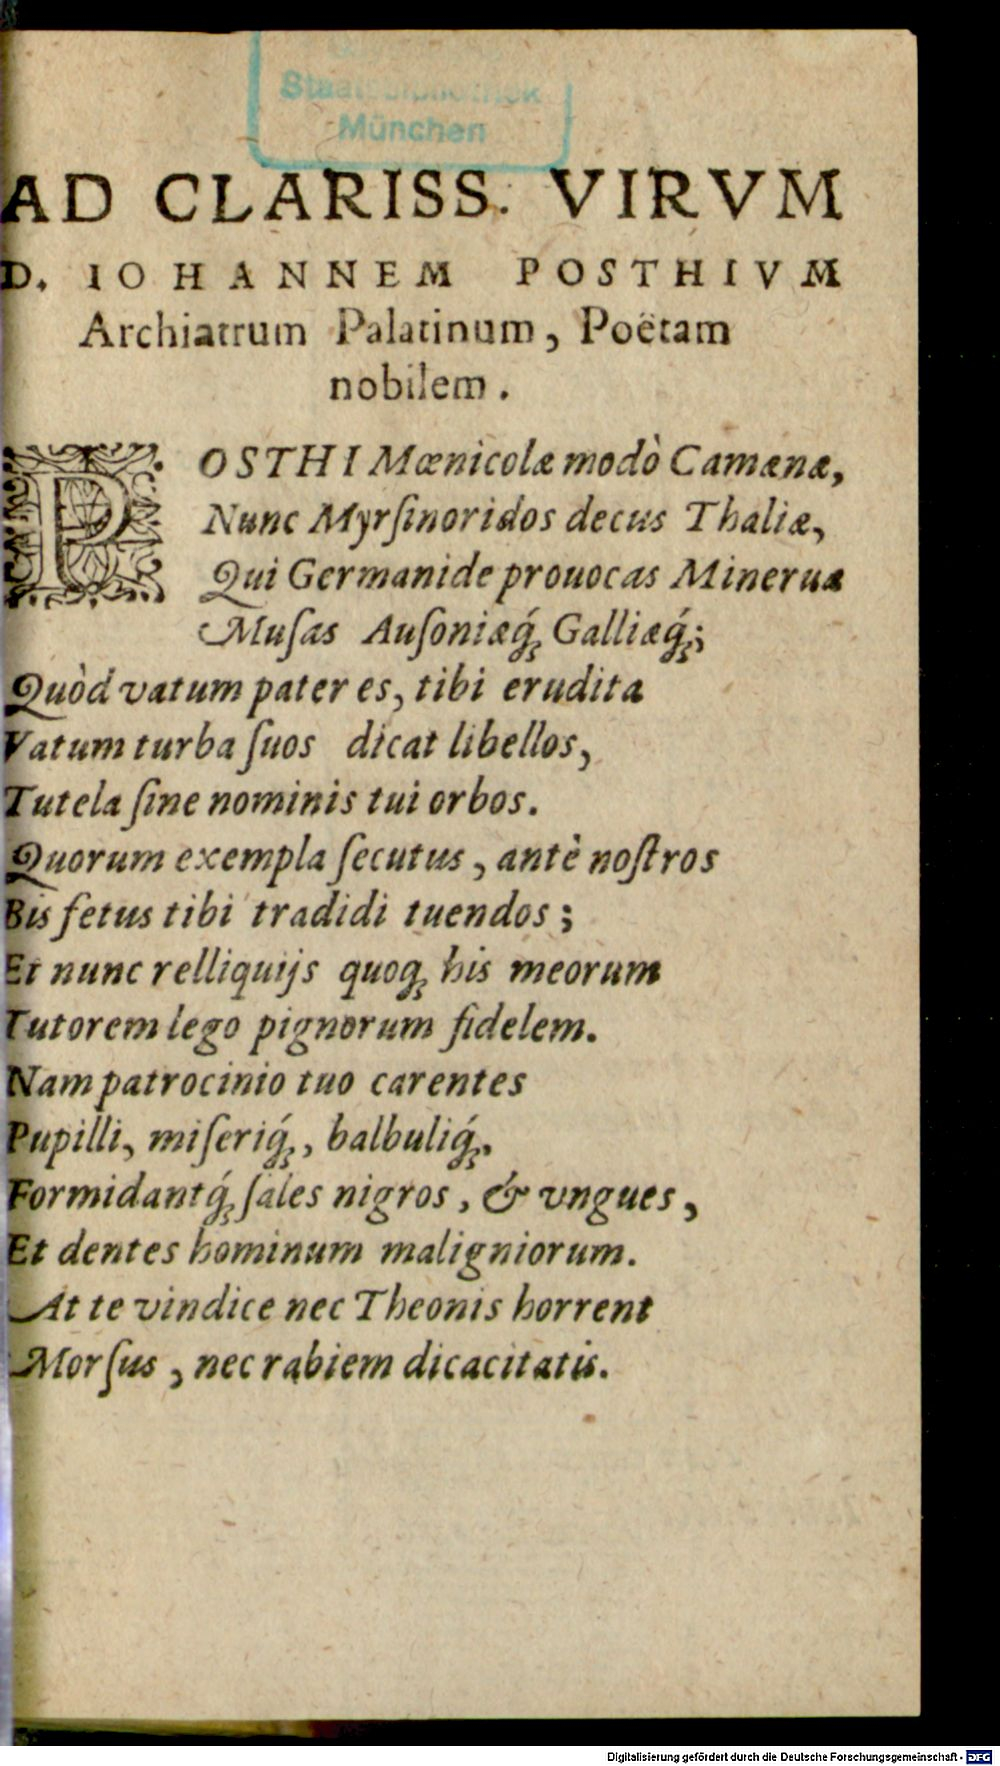 Staatsbibliothek
München
AD CLARISS. VIRVM
D. IOHANNEM POSTHIVM
Archiatrum Palatinum, Poëtam
nobilem.
POSTHI Mœnicolæ modò Camænæ,
Nunc Myrſinoridos decus Thaliæ,
Qui Germanide prouocas Minerua
Muſas Auſoniæq́; Galliæq́;;
Quòd vatum pater es, tibi erudita
Vatum turba ſuos dicat libellos,
Tutela ſine nominis tui orbos.
Quorum exempla ſecutus, antè noſtros
Bis fetus tibi tradidi tuendos;
Et nunc relliquijs quoq; his meorum
Tutorem lego pignorum fidelem.
Nam patrocinio tuo carentes
Pupilli, miſeriq́;, balbuliq́;,
Formidantq́; ſales nigros, & vngues,
Et dentes hominum maligniorum.
At te vindice nec Theonis horrent
Morſus, nec rabiem dicacitatis.
Digitalisierung gefördert durch die Deutsche Forschungsgemeinschaft - DFG